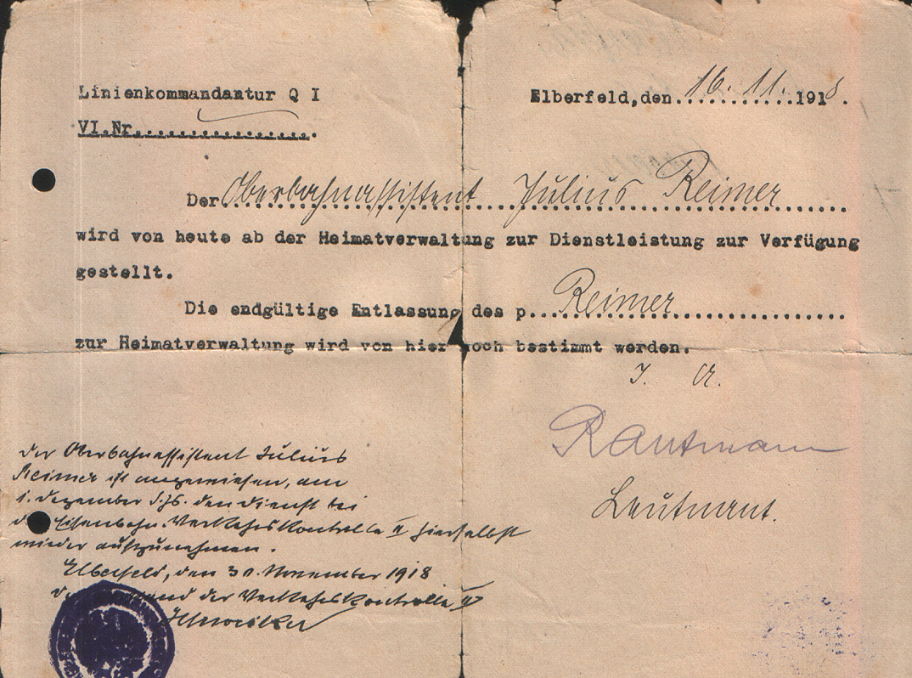 Linienkommandantur Q I
Elberfeld,den 16. 11. 1918.
VI.Nr.
Der Oberbahnassistent Julius Reimer
wird von heute ab der Heimatverwaltung zur Dienstleistung zur Verfügung
gestellt.
Die endgültige Entlassung des p. Reimer
zur Heimatverwaltung wird von hier noch bestimmt werden.
I. A.
Rautmann
Leutnant.
Der Oberbahnassistent Julius
Reimer ist angewiesen, am
1. Dezember d. Js. den Dienst bei
der Eisenbahn-Verkehrskontrolle II hierselbst
wieder aufzunehmen.
Elberfeld, den 30. November 1918
der Verkehrskontrolle II